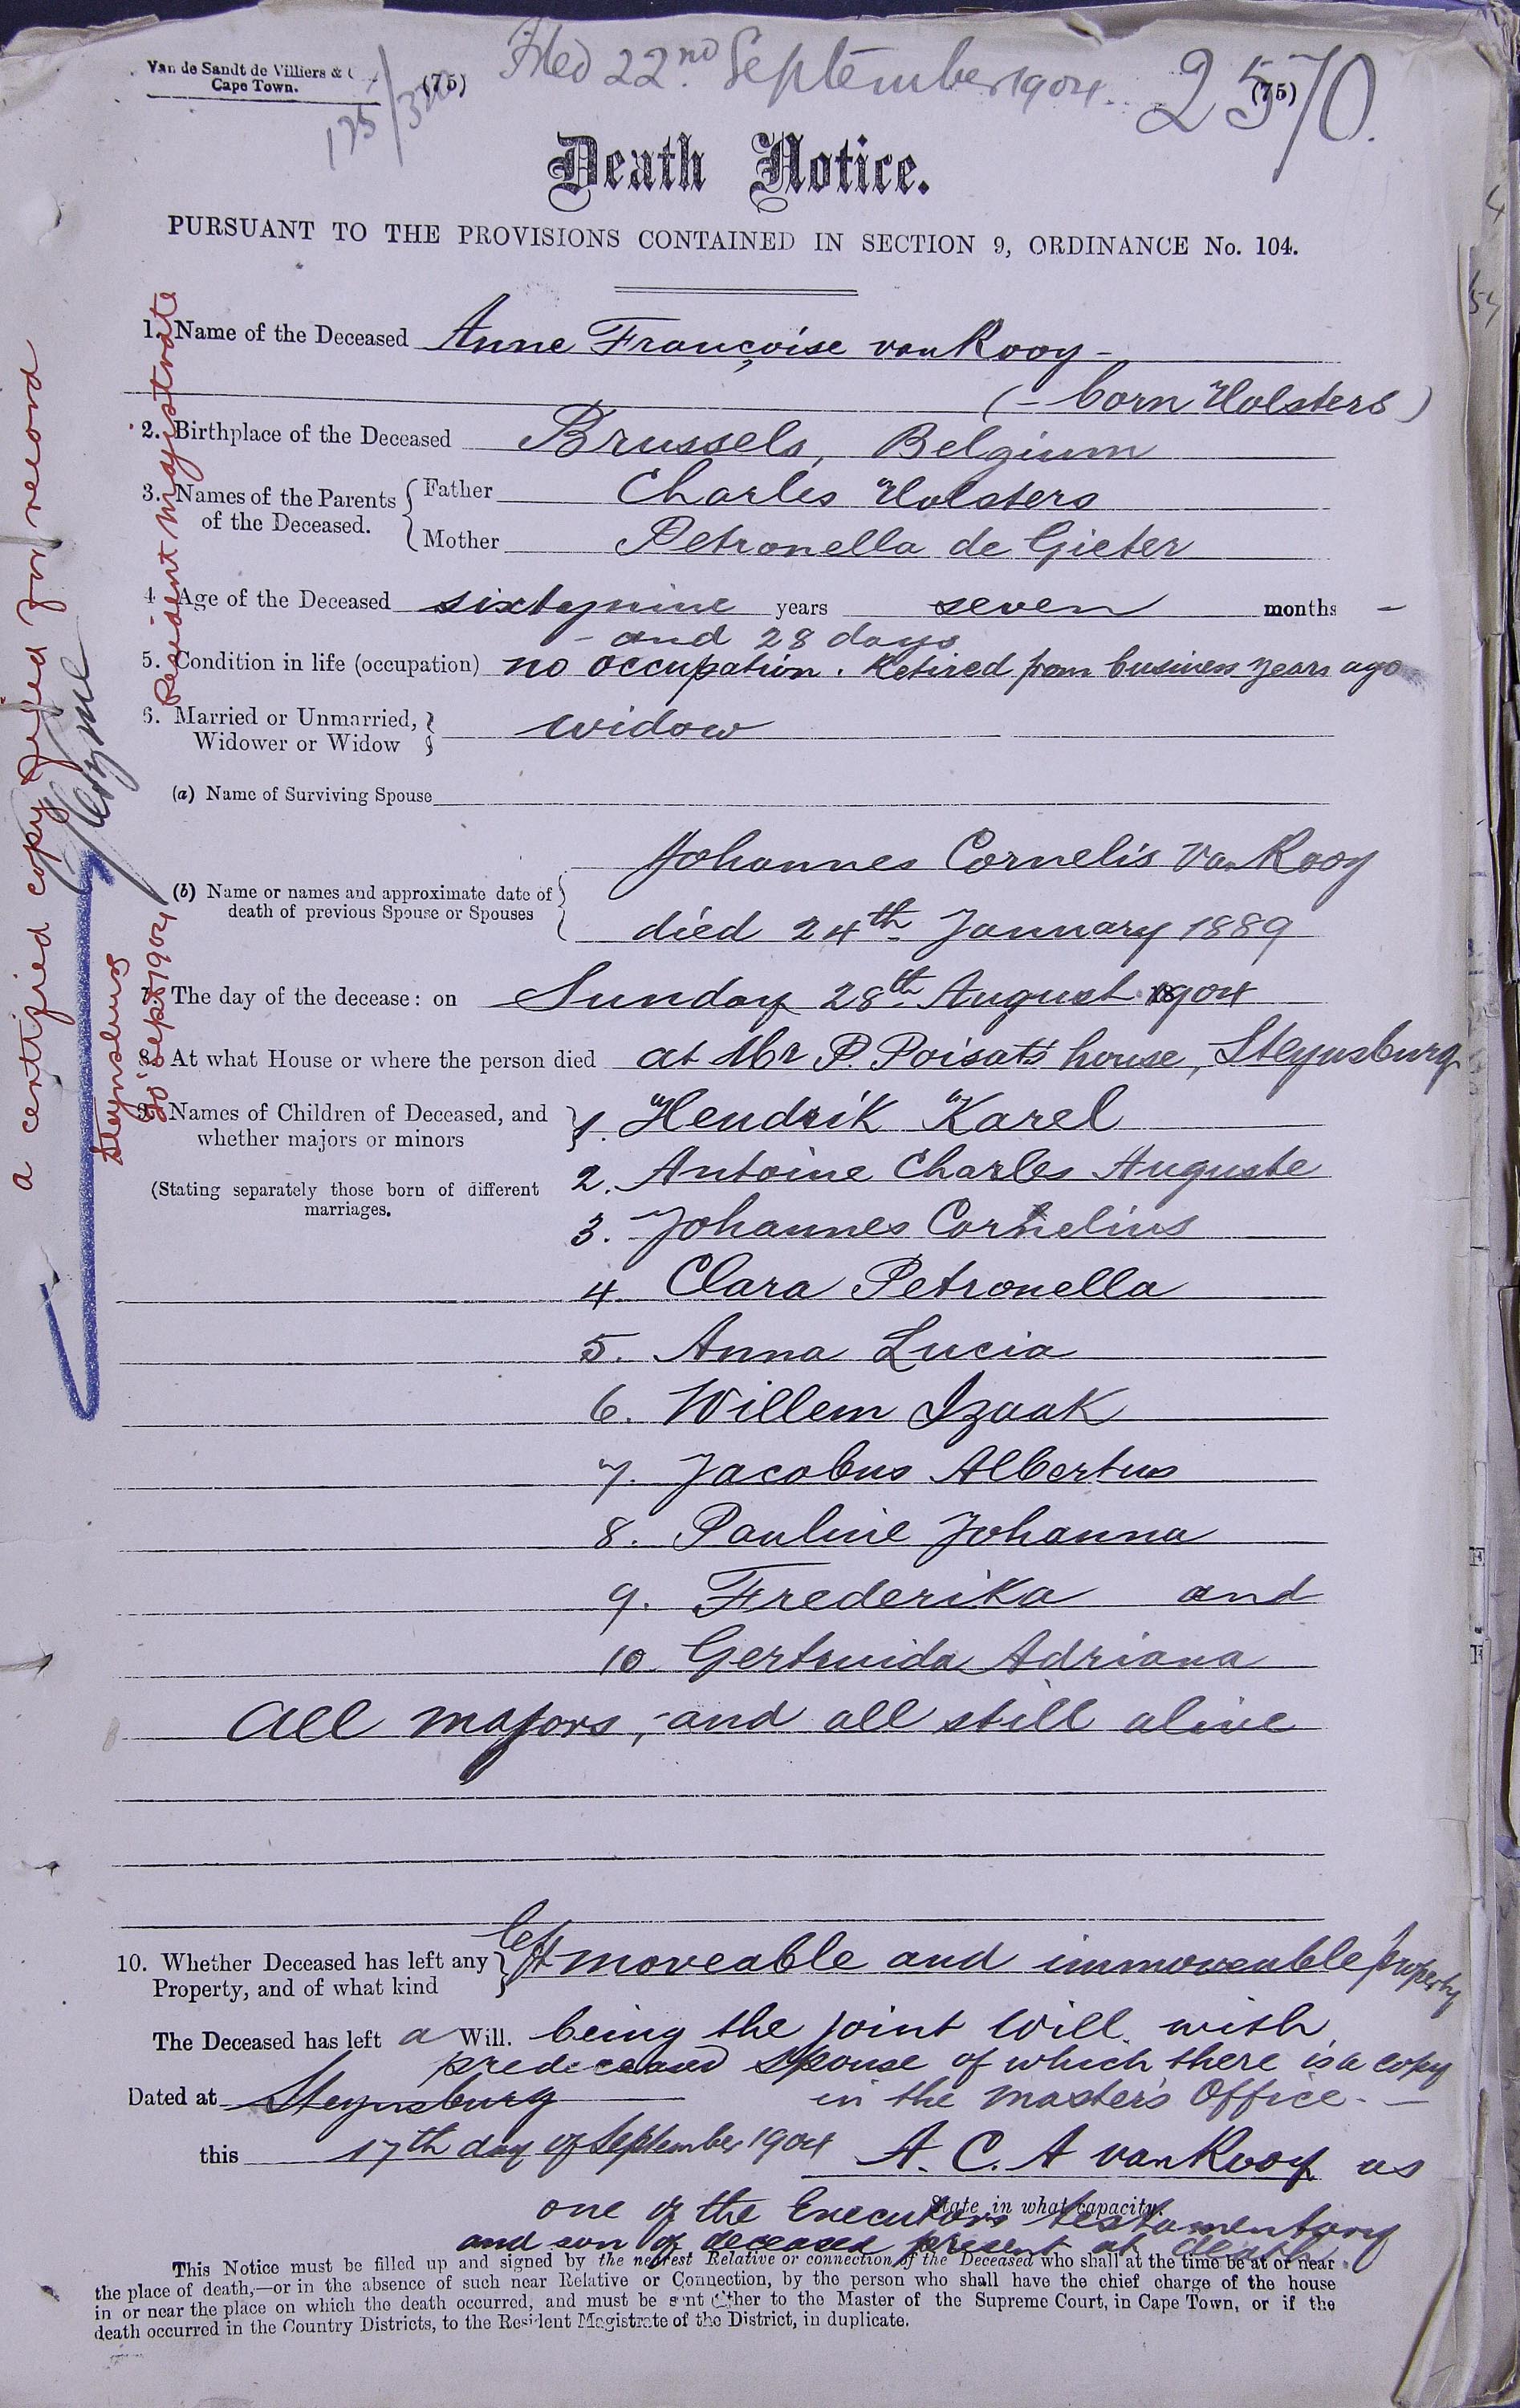 Van de Sandt de Villiers & C
Cape Town.
(75)
Filed 22nd September 1904
2570.
(75)
Death Notice.
PURSUANT TO THE PROVISIONS CONTAINED IN SECTION 9, ORDINANCE No. 104.
1. Name of the Deceased Anne Françoise van Rooy -
(- born Holsters)
2. Birthplace of the Deceased Brussels, Belgium
3. Names of the Parents of the Deceased. Father Charles Holsters
Mother Petronella de Gieter
4 Age of the Deceased sixtynine years seven months -
- and 28 days
5. Condition in life (occupation) no occupation. Retired from business years ago
6. Married or Unmarried, Widower or Widow widow
(a) Name of Surviving Spouse
(b) Name or names and approximate date of death of previous Spouse or Spouses
Johannes Cornelis van Rooy
died 24th January 1889
7. The day of the decease: on Sunday 28th August 1904
8. At what House or where the person died at Mr P. Poisat's house, Steynsburg
9. Names of Children of Deceased, and whether majors or minors
(Stating separately those born of different marriages.
1. Hendrik Karel
2. Antoine Charles Auguste
3. Johannes Cornelius
4. Clara Petronella
5. Anna Lucia
6. Willem Izaak
7. Jacobus Albertus
8. Pauline Johanna
9. Frederika and
10 Gertruida Adriana
All majors, - and all still alive
10. Whether Deceased has left any Property, and of what kind left moveable and immoveable property
The Deceased has left a Will. being the joint Will with
predeceased spouse of which there is a copy
in the Master's Office. -
Dated at Steynsburg
this 17th day of September 1904 A. C. A van Rooy as
State in what capacity.
one of the Executors testamentary
and son of deceased present at death
This Notice must be filled up and signed by the nearest Relative or connection of the Deceased who shall at the time be at or near
the place of death,—or in the absence of such near Relative or Connection, by the person who shall have the chief charge of the house
in or near the place on which the death occurred, and must be sent either to the Master of the Supreme Court, in Cape Town, or if the
death occurred in the Country Districts, to the Resident Magistrate of the District, in duplicate.
a certified copy filed for record
Resident Magistrate
Steynsburg
20 Sept 1904